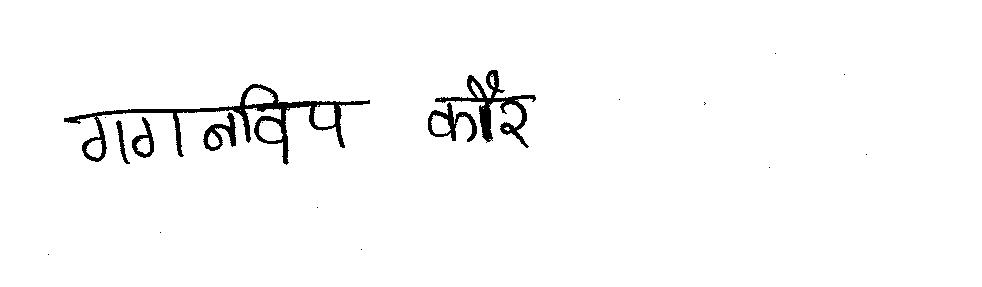 गगनविप कौर